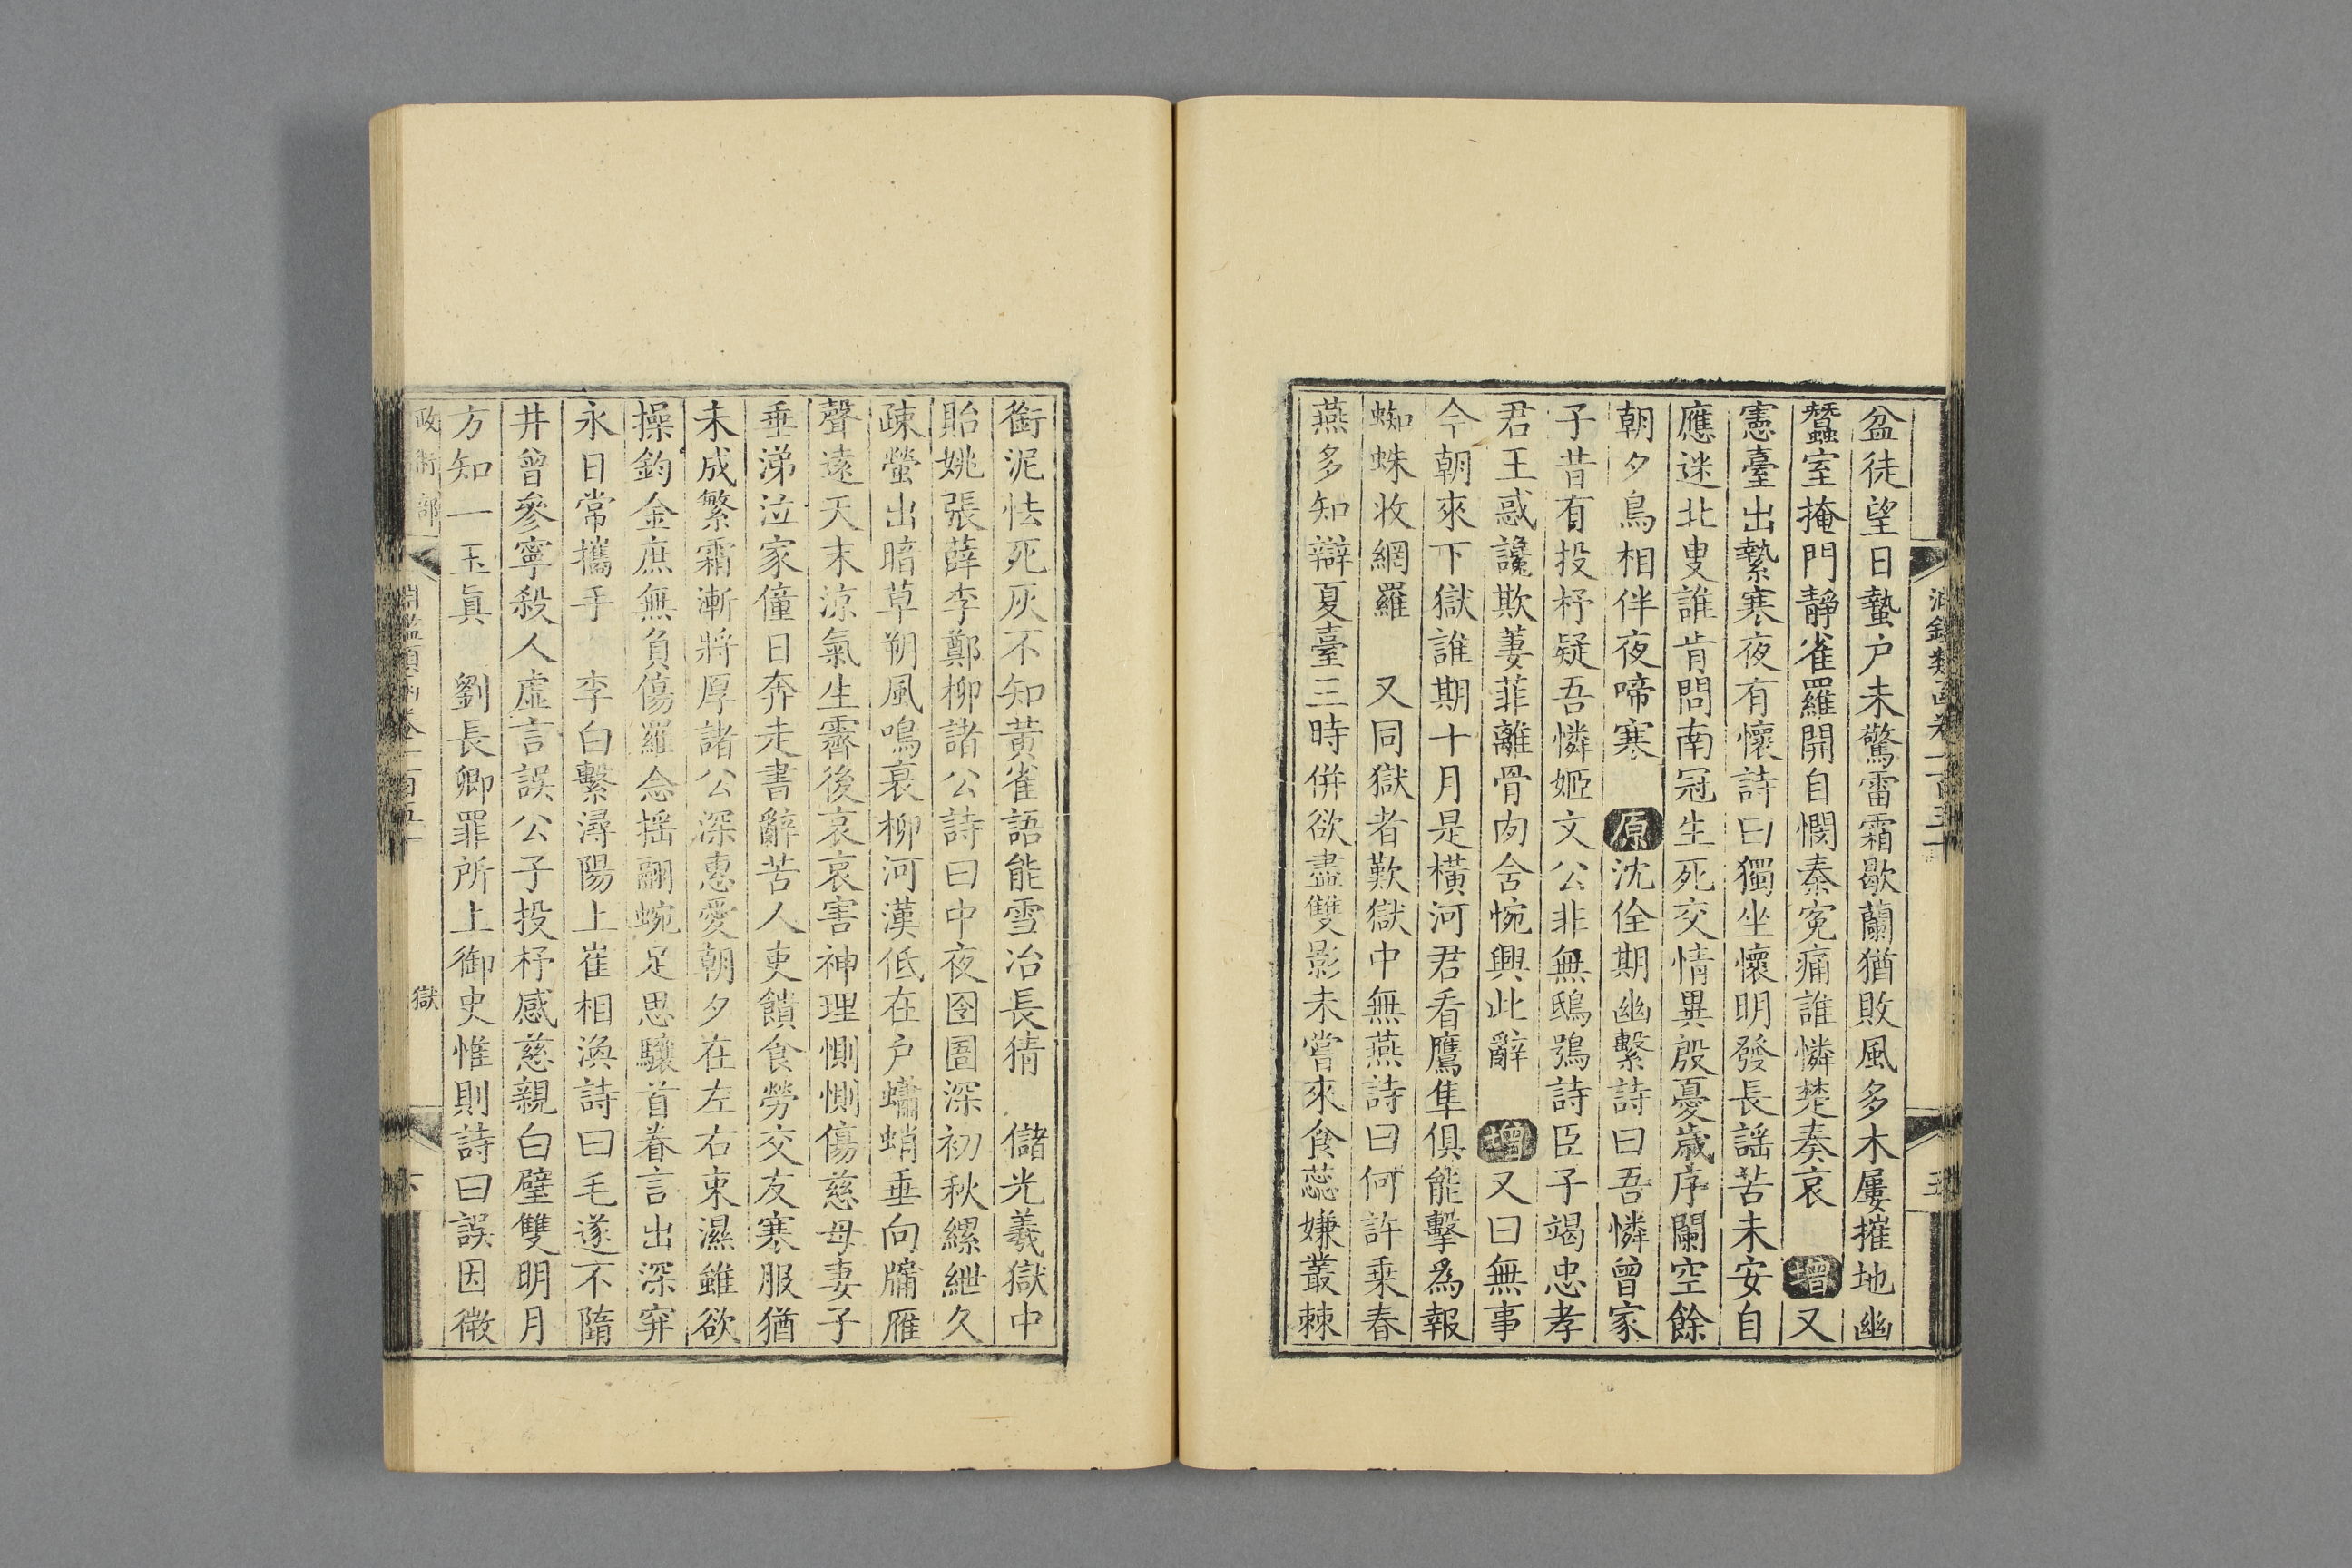 盆徒望日蟄户未驚雷霜歇蘭猶敗風多木屢摧地幽
蠶室掩門靜雀羅開自憫秦寃痛誰憐楚奏哀 增 又
憲臺出縶寒夜有懷詩曰獨坐懷明發長謡苦未安自
應迷北叟誰肯問南冠生死交情異殷憂歲序闌空餘
朝夕鳥相伴夜啼寒 原 沈佺期幽繫詩曰吾憐曾家
子昔有投杼疑吾憐姬文公非無鴟鴞詩臣子竭忠孝
君王惑讒欺萋菲離骨肉含惋興此辭 增 又曰無事
今朝來下獄誰期十月是橫河君看鷹隼俱能擊爲報
蜘蛛收網羅 又同獄者歎獄中無燕詩曰何許乘春
燕多知辯夏臺三時併欲盡雙影未嘗來食蕊嫌叢棘
銜泥怯死灰不知黄雀語能雪冶長猜 儲光羲獄中
貽姚張薛李鄭柳諸公詩曰中夜囹圄深初秋縲紲久
疎螢出暗草朔風鳴衰柳河漢低在户蠨蛸垂向牖雁
聲遠天末涼氣生霽後哀哀害神理惻惻傷慈母妻子
垂涕泣家僮日奔走書辭苦人吏饋食勞交友寒服猶
未成繁霜漸將厚諸公深惠愛朝夕在左右束濕雖欲
操鈞金庶無負傷羅念摇翮蜿足思驤首眷言出深穽
永日常攜手 李白繫潯陽上崔相渙詩曰毛遂不隋
井曾參寧殺人虛言誤公子投杼感慈親白璧雙明月
方知一玉眞 劉長卿罪所上御史惟則詩曰誤因微
政術部
獄